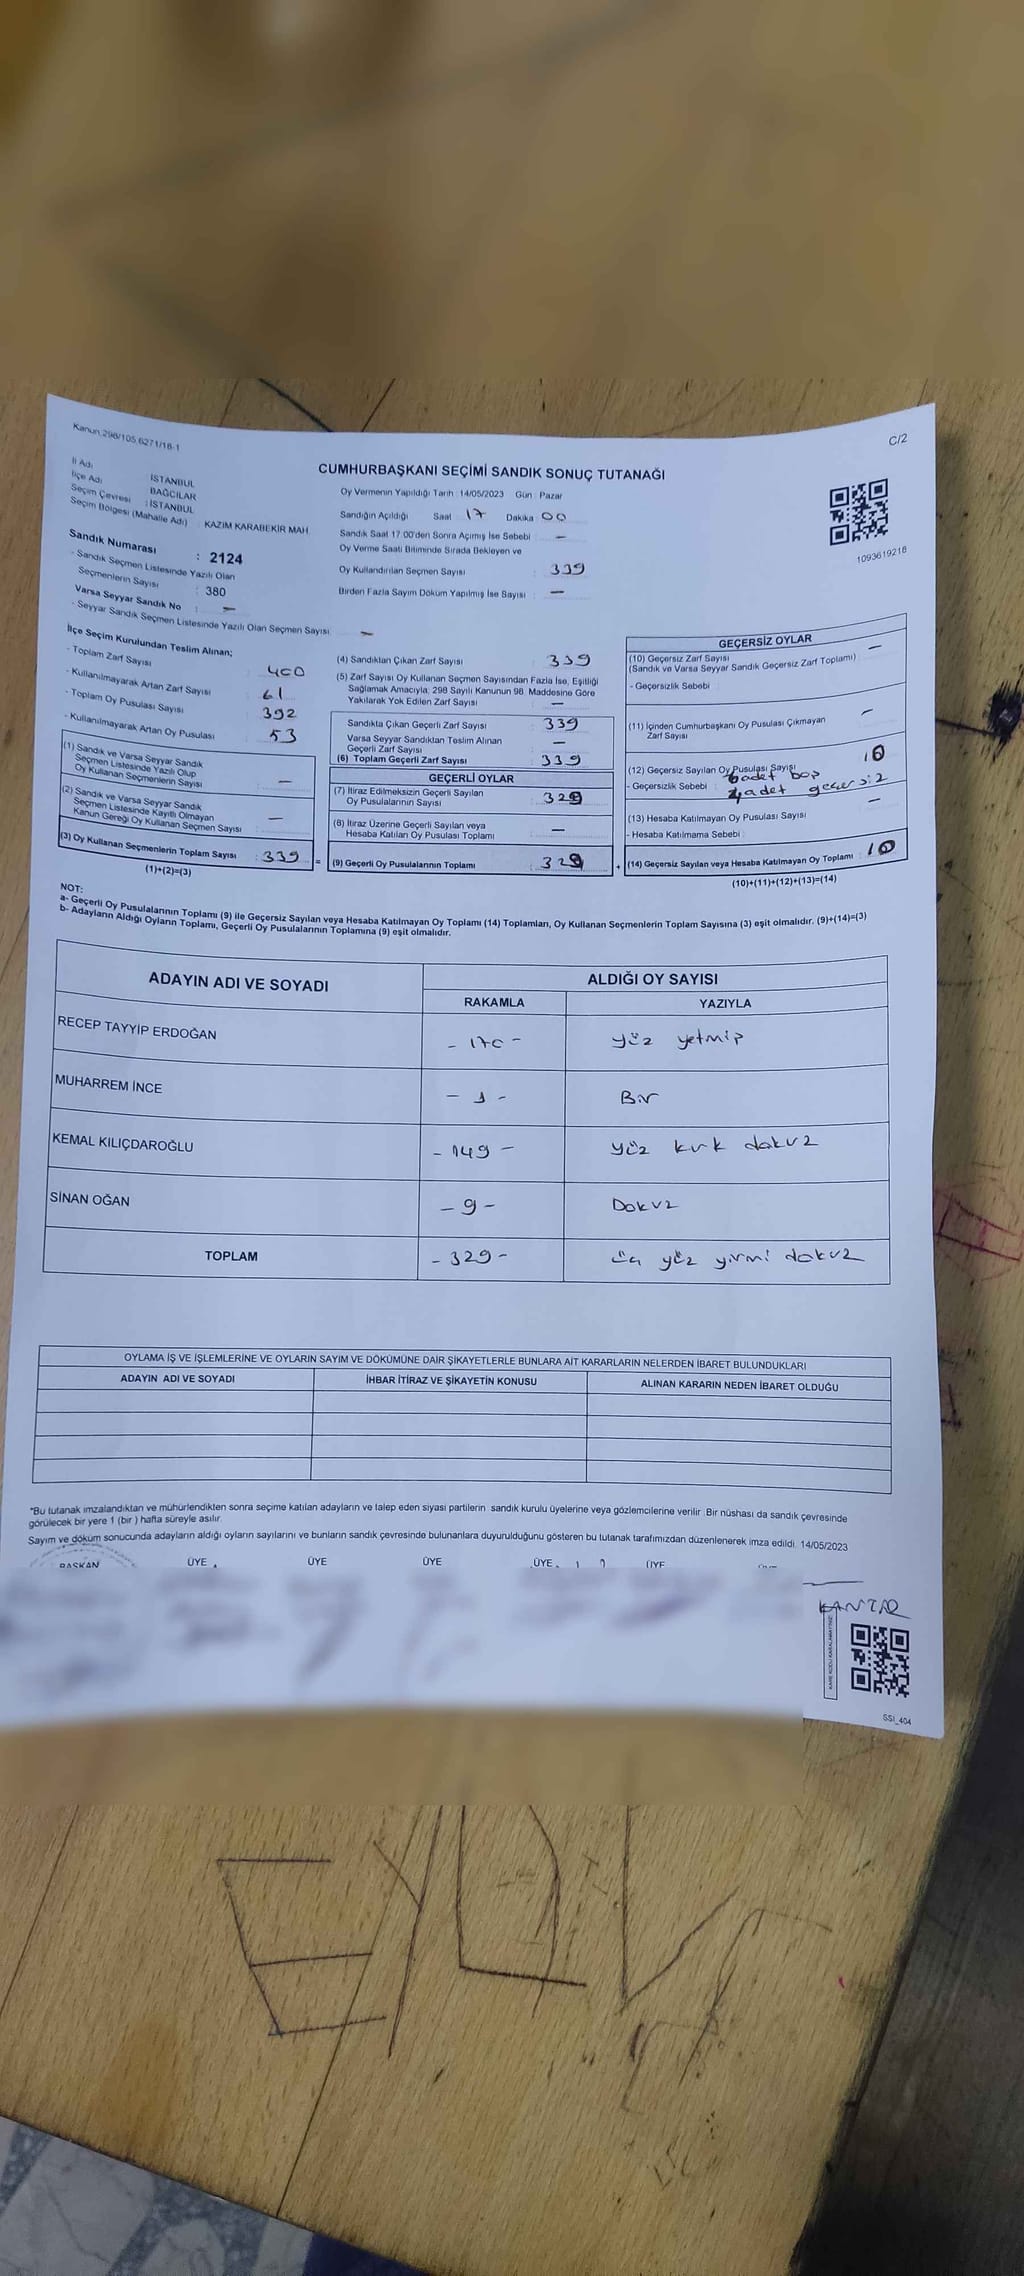 Kanun:298/105,6271/18-1
C/2
CUMHURBAŞKANI SEÇİMİ SANDIK SONUÇ TUTANAĞI
İl Adı : İSTANBUL
İlçe Adı : BAĞCILAR
Seçim Çevresi : İSTANBUL
Seçim Bölgesi (Mahalle Adı) : KAZIM KARABEKİR MAH.
Sandık Numarası : 2124
- Sandık Seçmen Listesinde Yazılı Olan
Seçmenlerin Sayısı : 380
Varsa Seyyar Sandık No : —
- Seyyar Sandık Seçmen Listesinde Yazılı Olan Seçmen Sayısı : —
Oy Vermenin Yapıldığı Tarih : 14/05/2023 Gün : Pazar
Sandığın Açıldığı Saat 17 Dakika 00
Sandık Saat 17:00'den Sonra Açımış İse Sebebi : —
Oy Verme Saati Bitiminde Sırada Bekleyen ve
Oy Kullandırılan Seçmen Sayısı : 339
Birden Fazla Sayım Döküm Yapılmış İse Sayısı : —
1093619218
İlçe Seçim Kurulundan Teslim Alınan;
- Toplam Zarf Sayısı : 400
- Kullanılmayarak Artan Zarf Sayısı : 61
- Toplam Oy Pusulası Sayısı : 392
- Kullanılmayarak Artan Oy Pusulası : 53
(1) Sandık ve Varsa Seyyar Sandık
Seçmen Listesinde Yazılı Olup
Oy Kullanan Seçmenlerin Sayısı : —
(2) Sandık ve Varsa Seyyar Sandık
Seçmen Listesinde Kayıtlı Olmayan
Kanun Gereği Oy Kullanan Seçmen Sayısı : —
(3) Oy Kullanan Seçmenlerin Toplam Sayısı : 339 =
(1)+(2)=(3)
(4) Sandıktan Çıkan Zarf Sayısı : 339
(5) Zarf Sayısı Oy Kullanan Seçmen Sayısından Fazla İse, Eşitliği
Sağlamak Amacıyla; 298 Sayılı Kanunun 98. Maddesine Göre
Yakılarak Yok Edilen Zarf Sayısı : —
Sandıkta Çıkan Geçerli Zarf Sayısı : 339
Varsa Seyyar Sandıktan Teslim Alınan
Geçerli Zarf Sayısı : —
(6) Toplam Geçerli Zarf Sayısı : 339
GEÇERLİ OYLAR
(7) İtiraz Edilmeksizin Geçerli Sayılan
Oy Pusulalarının Sayısı : 329
(8) İtiraz Üzerine Geçerli Sayılan veya
Hesaba Katılan Oy Pusulası Toplamı : —
(9) Geçerli Oy Pusulalarının Toplamı : 329 +
GEÇERSİZ OYLAR
(10) Geçersiz Zarf Sayısı : —
(Sandık ve Varsa Seyyar Sandık Geçersiz Zarf Toplamı)
- Geçersizlik Sebebi :
(11) İçinden Cumhurbaşkanı Oy Pusulası Çıkmayan : —
Zarf Sayısı
(12) Geçersiz Sayılan Oy Pusulası Sayısı : 10
- Geçersizlik Sebebi : 6 adet boş
4 adet geçersiz
(13) Hesaba Katılmayan Oy Pusulası Sayısı : —
- Hesaba Katılmama Sebebi :
(14) Geçersiz Sayılan veya Hesaba Katılmayan Oy Toplamı : 10
(10)+(11)+(12)+(13)=(14)
NOT:
a- Geçerli Oy Pusulalarının Toplamı (9) ile Geçersiz Sayılan veya Hesaba Katılmayan Oy Toplamı (14) Toplamları, Oy Kullanan Seçmenlerin Toplam Sayısına (3) eşit olmalıdır. (9)+(14)=(3)
b- Adayların Aldığı Oyların Toplamı, Geçerli Oy Pusulalarının Toplamına (9) eşit olmalıdır.
ADAYIN ADI VE SOYADI ALDIĞI OY SAYISI
RAKAMLA YAZIYLA
RECEP TAYYİP ERDOĞAN - 170 - yüz yetmiş
MUHARREM İNCE - 1 - Bir
KEMAL KILIÇDAROĞLU - 149 - yüz kırk dokuz
SİNAN OĞAN - 9 - Dokuz
TOPLAM - 329 - üç yüz yirmi dokuz
OYLAMA İŞ VE İŞLEMLERİNE VE OYLARIN SAYIM VE DÖKÜMÜNE DAİR ŞİKAYETLERLE BUNLARA AİT KARARLARIN NELERDEN İBARET BULUNDUKLARI
ADAYIN ADI VE SOYADI İHBAR İTİRAZ VE ŞİKAYETİN KONUSU ALINAN KARARIN NEDEN İBARET OLDUĞU
*Bu tutanak imzalandıktan ve mühürlendikten sonra seçime katılan adayların ve talep eden siyasi partilerin sandık kurulu üyelerine veya gözlemcilerine verilir. Bir nüshası da sandık çevresinde
görülecek bir yere 1 (bir ) hafta süreyle asılır.
Sayım ve döküm sonucunda adayların aldığı oyların sayılarını ve bunların sandık çevresinde bulunanlara duyurulduğunu gösteren bu tutanak tarafımızdan düzenlenerek imza edildi. 14/05/2023
BAŞKAN ÜYE ÜYE ÜYE ÜYE ÜYE
KANTAR
KARE KODU KARALAMAYINIZ
SSI_404